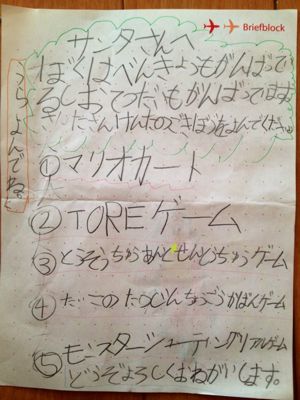 Briefblock
サンタさんへ
ぼくはべんきょうもがんばって
るしおてつだいもがんばってます
けんたのきぼうをよんでください
うらよんでね。
①マリオガート
②TOREゲーム
③とうそうちゅうあんとせんとうちゅうゲーム
④たいこのたつじんちょうごうかばんゲーム
⑤モンスターシューティングリアルゲーム
どうぞよろしくおねがいします。